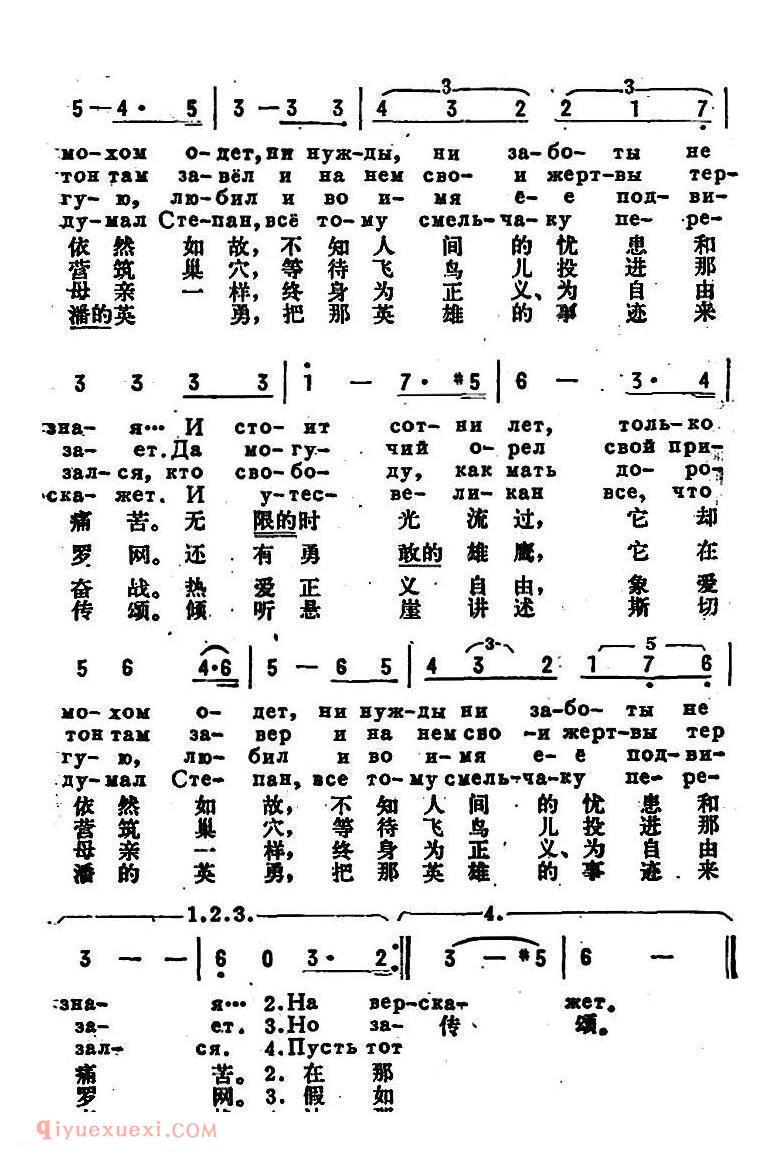 5—4· 5 | 3 —3 3 | 4 3 2 2 1 7 |
3 3
мо-хом о-дет, ни нуж-ды, ни за-бо-ты не
тон там за-вёл и на нем сво-и жерт-вы тер-
гу-ю, лю-бил и во и-мя е-е под-ви-
ду-мал Сте-пан, всё то-му смель-ча-ку пе-ре-
依然如故，不知人间的忧患和
营筑巢穴，等待飞鸟儿投进那
母亲一样，终身为正义、为自由
潘的英勇，把那英雄的事迹来
3 3 3 3 | 1 — 7· #5 | 6 — 3· 4 |
зна-я… И сто-ит сот-ни лет, толь-ко
за-ет. Да мо-гу-чий о-рел свой при-
зал-ся, кто сво-бо-ду, как мать до-ро-
ска-жет. И у-тес-ве-ли-кан все, что
痛苦。无限的时光流过，它却
罗网。还有勇敢的雄鹰，它在
奋战。热爱正义自由，象爱
传颂。倾听悬崖讲述斯切
5 6 4·6 | 5 — 6 5 | 4 3 2 1 7 6 |
3 5
мо-хом о-дет, ни нуж-ды ни за-бо-ты не
тон там за-вер и на нем сво-и жерт-вы тер
гу-ю, лю-бил и во и-мя е-ё под-ви-
ду-мал Сте-пан, все то-му смель-ча-ку пе-ре-
依然如故，不知人间的忧患和
营筑巢穴，等待飞鸟儿投进那
母亲一样，终身为正义、为自由
潘的英勇，把那英雄的事迹来
1.2.3. 4.
3 — — | 6 0 3· 2 :|| 3 — #5 | 6 — ||
зна-я… 2.На вер-ска-жет.
за-ет. 3.Но за-传颂。
зал-ся. 4.Пусть тот
痛苦。2. 在那
罗网。3. 假如
qiyuexuexi.com